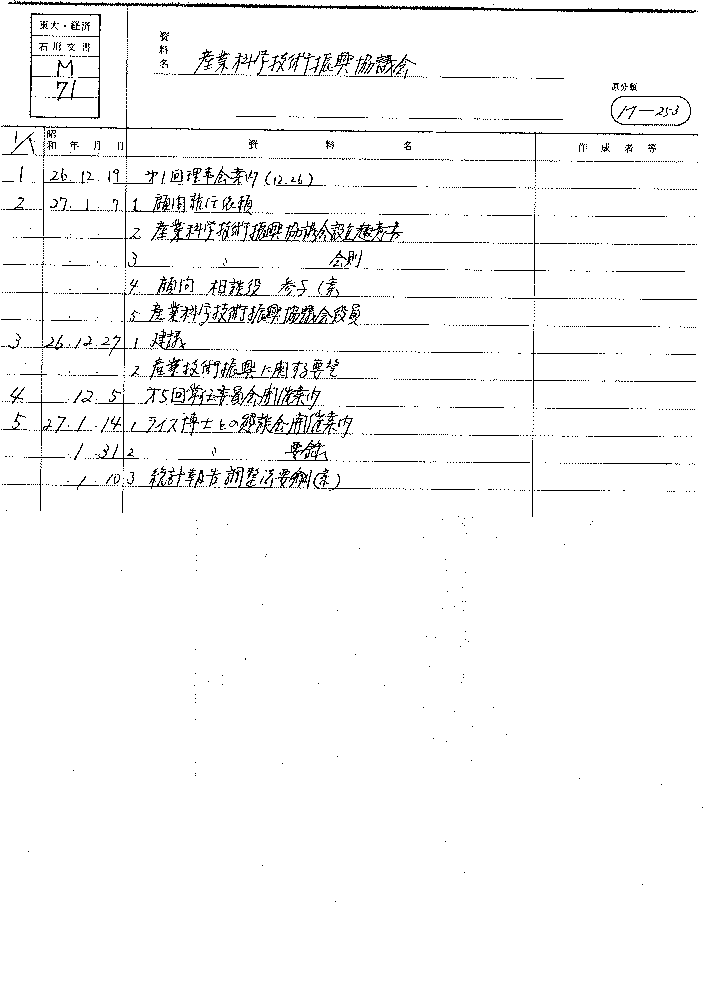 東大・経済
石川文書
M
71
資料名
産業科学技術振興協議会
原分類
17-253
1/1 昭和 年 月 日 資 料 名 作 成 者 等
1 26.12.19 才1回理事会案内(12.26)
2 27.1.7 1 顧問就任依頼
2 産業科学技術振興協議会設立趣意書
3 〃 会則
4 顧問 相談役 参与(案
5 産業科学技術振興協議会役員
3 26.12.27 1 建議
2 産業技術振興に関する要望
4 12.5 才5回常任委員会開催案内
5 27.1.14 1 ライス博士との懇談会開催案内
1.31 2 〃 要録
1.10 3 統計報告調整法要綱(案)